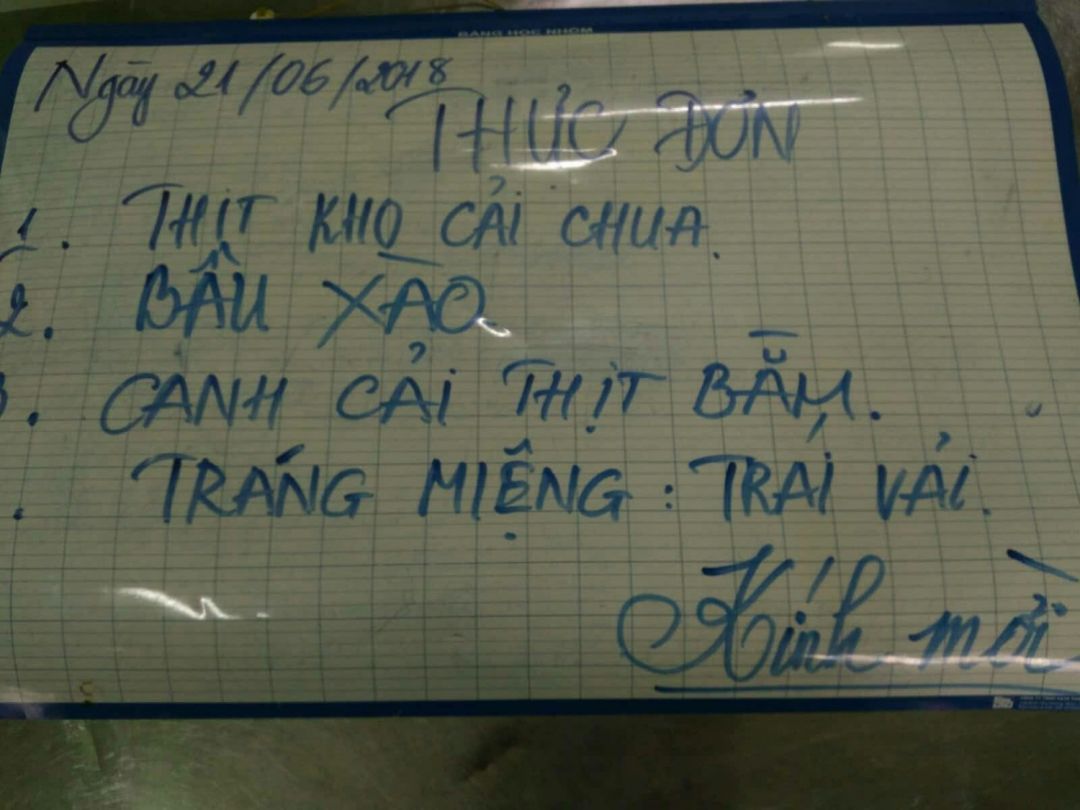 BẢNG HỌC NHÓM
Ngày 21/06/2018
THỰC ĐƠN
1. THỊT KHO CẢI CHUA.
2. BẦU XÀO.
3. CANH CẢI THỊT BẰM.
. TRÁNG MIỆNG : TRÁI VẢI.
Kính mời